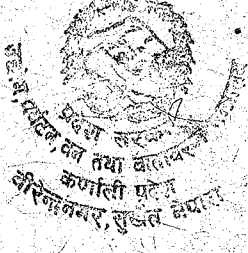 प्रदेश सरकार
पर्यटन, वन तथा वातावरण
कर्णाली प्रदेश
वीरेन्द्रनगर, सुर्खेत नेपाल